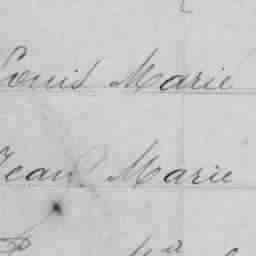 Louis Marie
Jean Marie